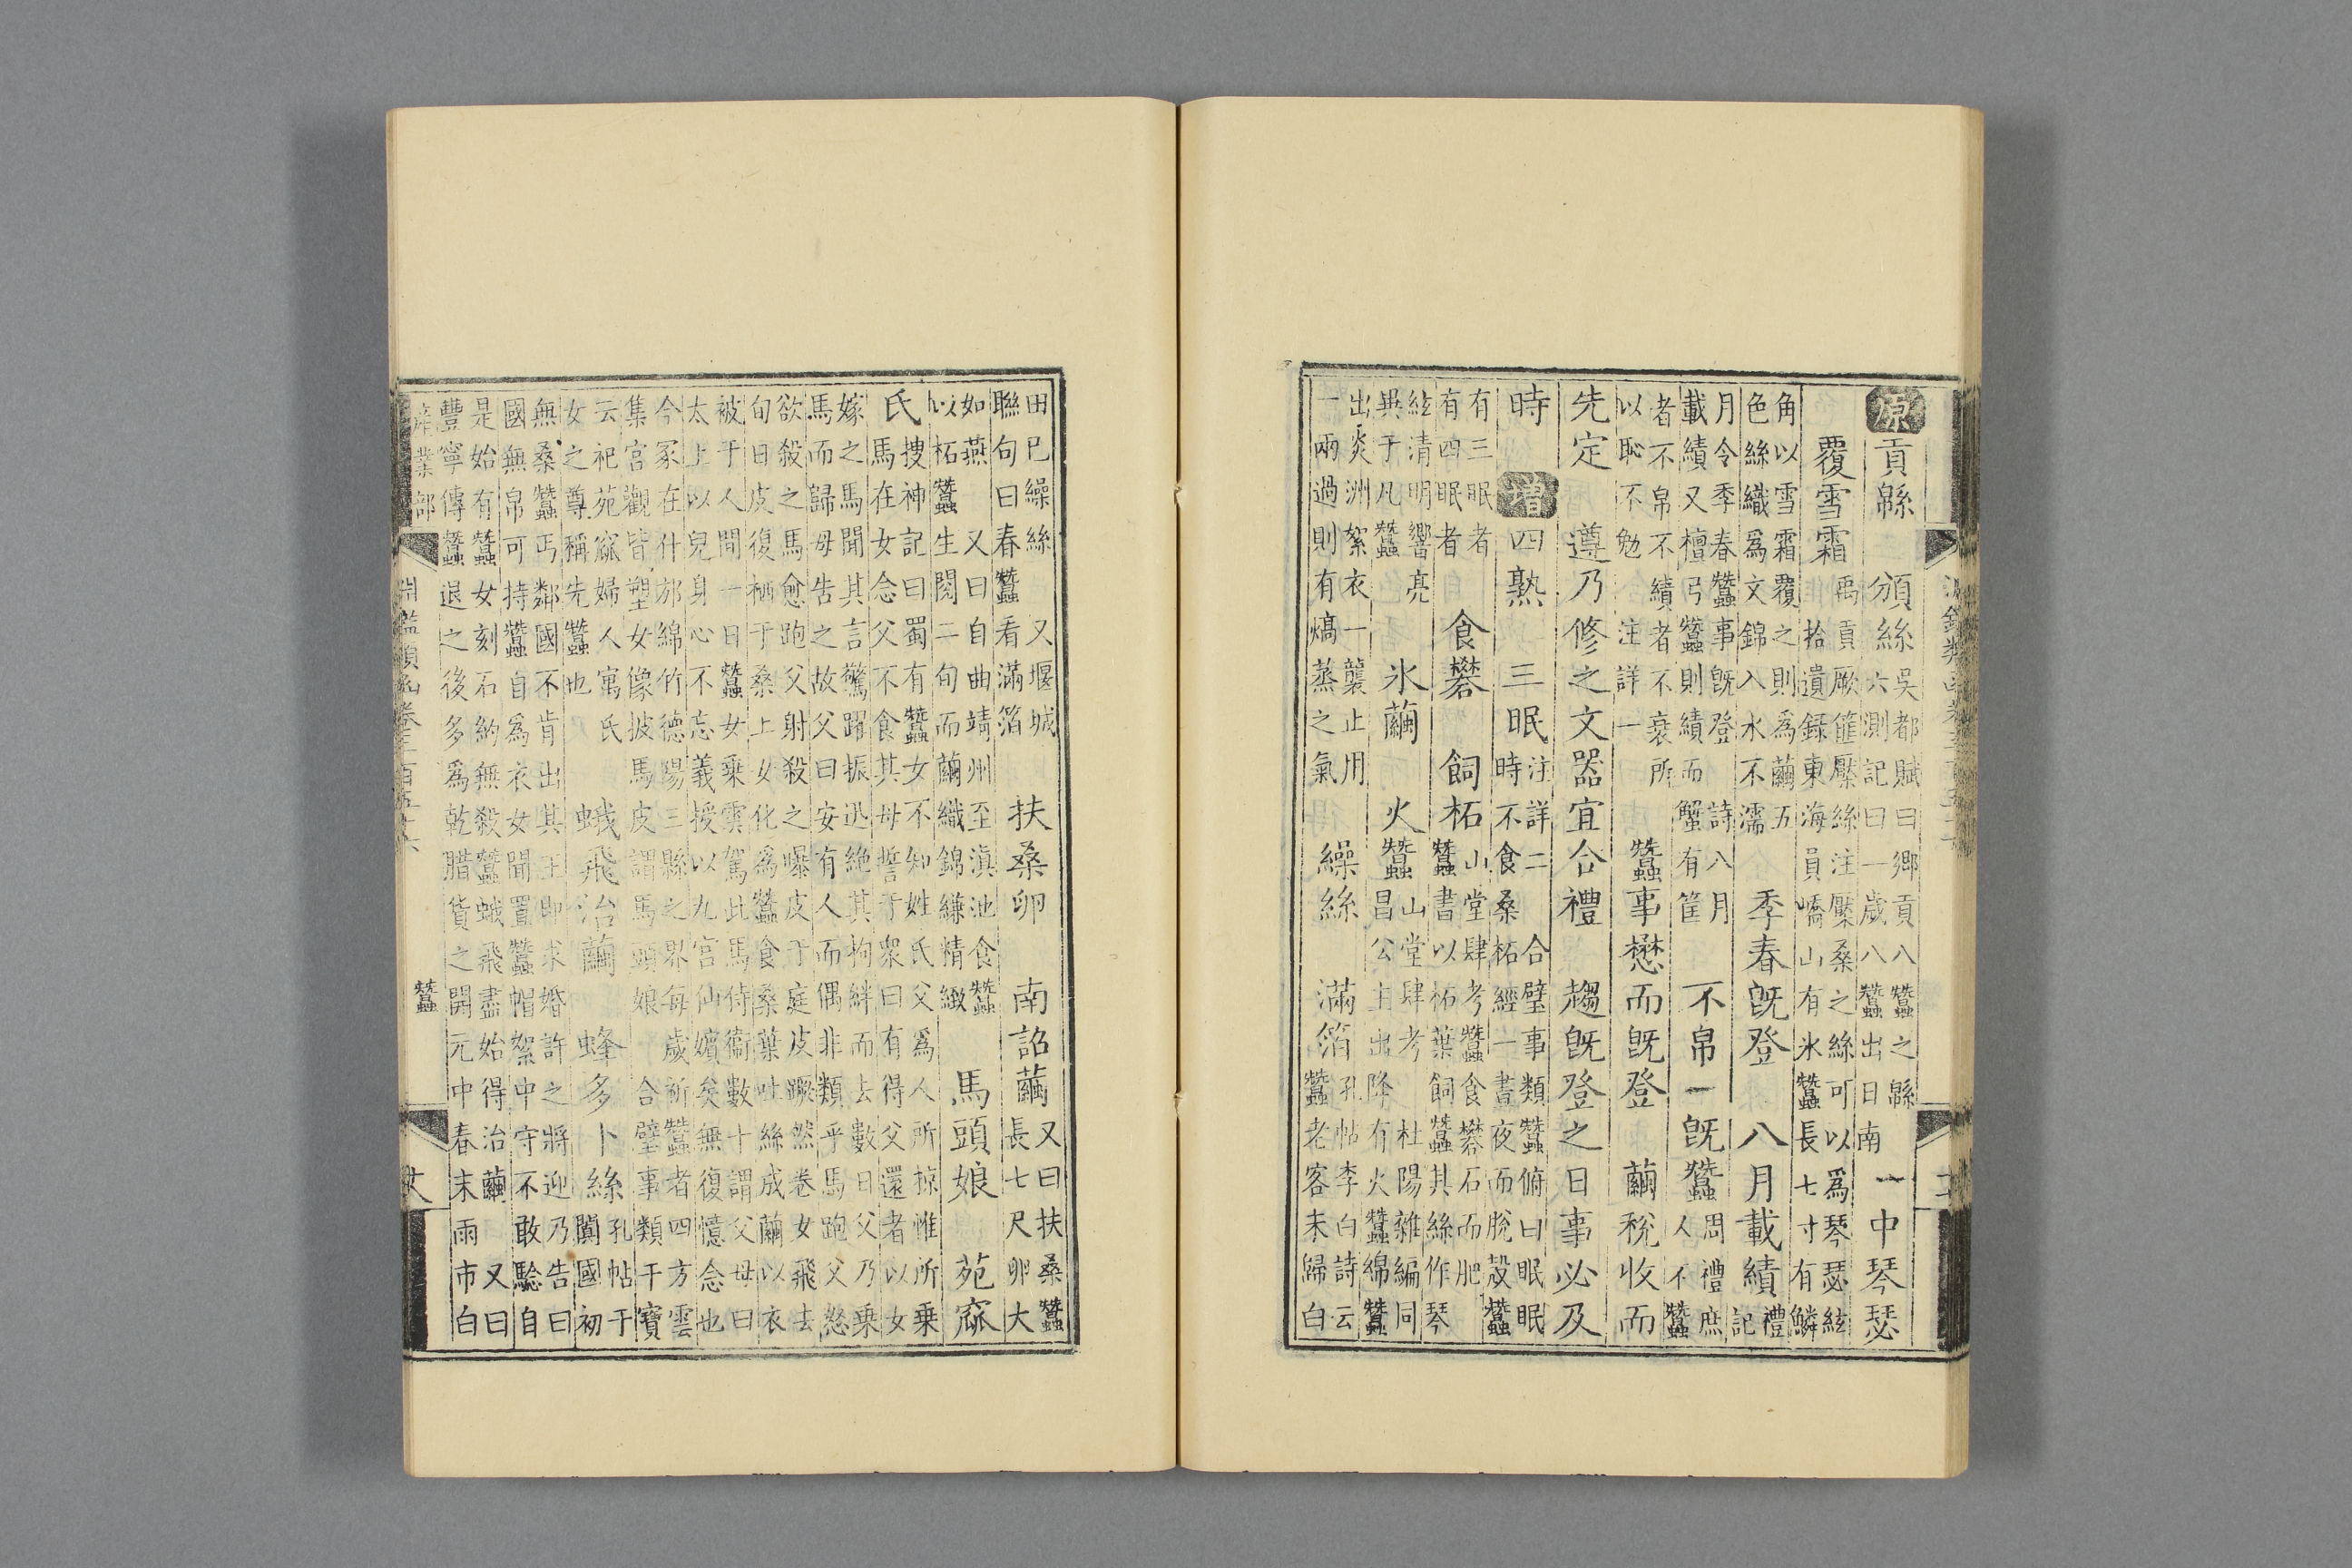 淵鑑類函
原 貢緜 頒絲 吳都賦曰鄉貢八蠶之緜
六測記曰一歲八蠶出日南 一中琴瑟
覆雪霜 禹貢厥篚檿絲注檿桑之絲可以為琴瑟絃
拾遺録東海員嶠山有氷蠶長七寸有鱗
角以雪霜覆之則為繭五
色絲織為文錦入水不濡 季春既登 八月載績 禮
記
月令季春蠶事既登 詩八月
載績又檀弓蠶則績而蟹有筐 不帛一既蠶 周禮庶
人不蠶
者不帛不績者不衰所
以恥不勉注詳一 蠶事懋而既登 繭稅收而
先定 遵乃修之文器宜合禮 趨既登之日事必及
時 增 四熟 三眠 注詳二 合璧事類蠶俯曰眠眠
時不食桑柘經一晝夜而脫殼蠶
有三眠者
有四眠者 食礬 飼柘 山堂肆考蠶食礬石而肥
蠶書以柘葉飼蠶其絲作琴
絃清明響亮
異于凡蠶 氷繭 火蠶 山堂肆考 杜陽雜編同
昌公主出降有火蠶綿蠶
出炎洲絮衣一襲止用
一兩過則有熇蒸之氣 繰絲 滿箔 孔帖李白詩云
蠶老客未歸白
田已繰絲 又堰城
聯句曰春蠶看滿箔 扶桑卵 南詔繭 又曰扶桑蠶
長七尺卵大
如燕 又曰自曲靖州至滇池食蠶
以柘蠶生閱二旬而繭織錦縑精緻 馬頭娘 苑窳
氏 搜神記曰蜀有蠶女不知姓氏父為人所掠惟所乗
馬在女念父不食其母誓于衆曰有得父還者以女
嫁之馬聞其言驚躍振迅絶其拘絆而去數日父乃乗
馬而歸母告之故父曰安有人而偶非類乎馬跑父怒
欲殺之馬愈跑父射殺之曝皮于庭皮蹶然卷女飛去
旬日皮復栖于桑上女化為蠶食桑葉吐絲成繭以衣
被于人間一日蠶女乗雲駕此馬侍衞數十謂父母曰
太上以兒身心不忘義授以九宮仙嬪矣無復憶念也
今冢在什邡綿竹德陽三縣之界每歲祈蠶者四方雲
集宮觀皆塑女像披馬皮謂馬頭娘 合璧事類干寶
云祀苑窳婦人寓氏
女之尊稱先蠶也 蛾飛治繭 蜂多卜絲 孔帖于
闐國初
無桑蠶丐鄰國不肯出其王即求婚許之將迎乃告曰
國無帛可持蠶自為衣女聞置蠶帽絮中守不敢驗自
是始有蠶女刻石約無殺蠶蛾飛盡始得治繭 又曰
豐寧傳蠶退之後多為乾腊貨之開元中春末雨市白
産業部 淵鑑類函卷三百五十六 蠶